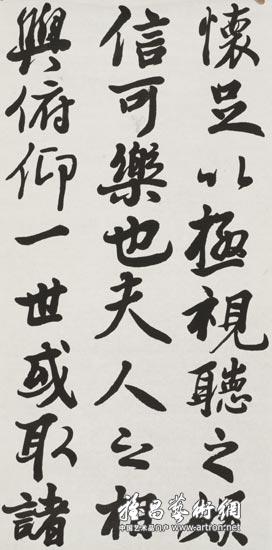 懷足以極視聽之娛
信可樂也夫人之相
與俯仰一世或取諸
雅昌藝術網
中国艺术品门户 www.artron.net